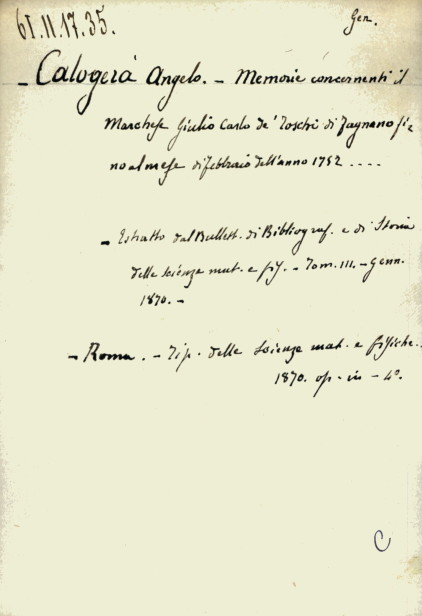 61.II.17.35.
Gen.
- Calogerà Angelo. - Memorie concernenti il
Marchese Giulio Carlo de' Toschi di Fagnano fi-
no al mese di febbraio dell'anno 1752 ....
- Estratto dal Bullett. di Bibliograf. e di Storia
delle scienze mat. e fis. - Tom. III. - Genn.
1870. -
- Roma. - Tip. delle Scienze mat. e fisiche.
1870. op. in - 4°.
C